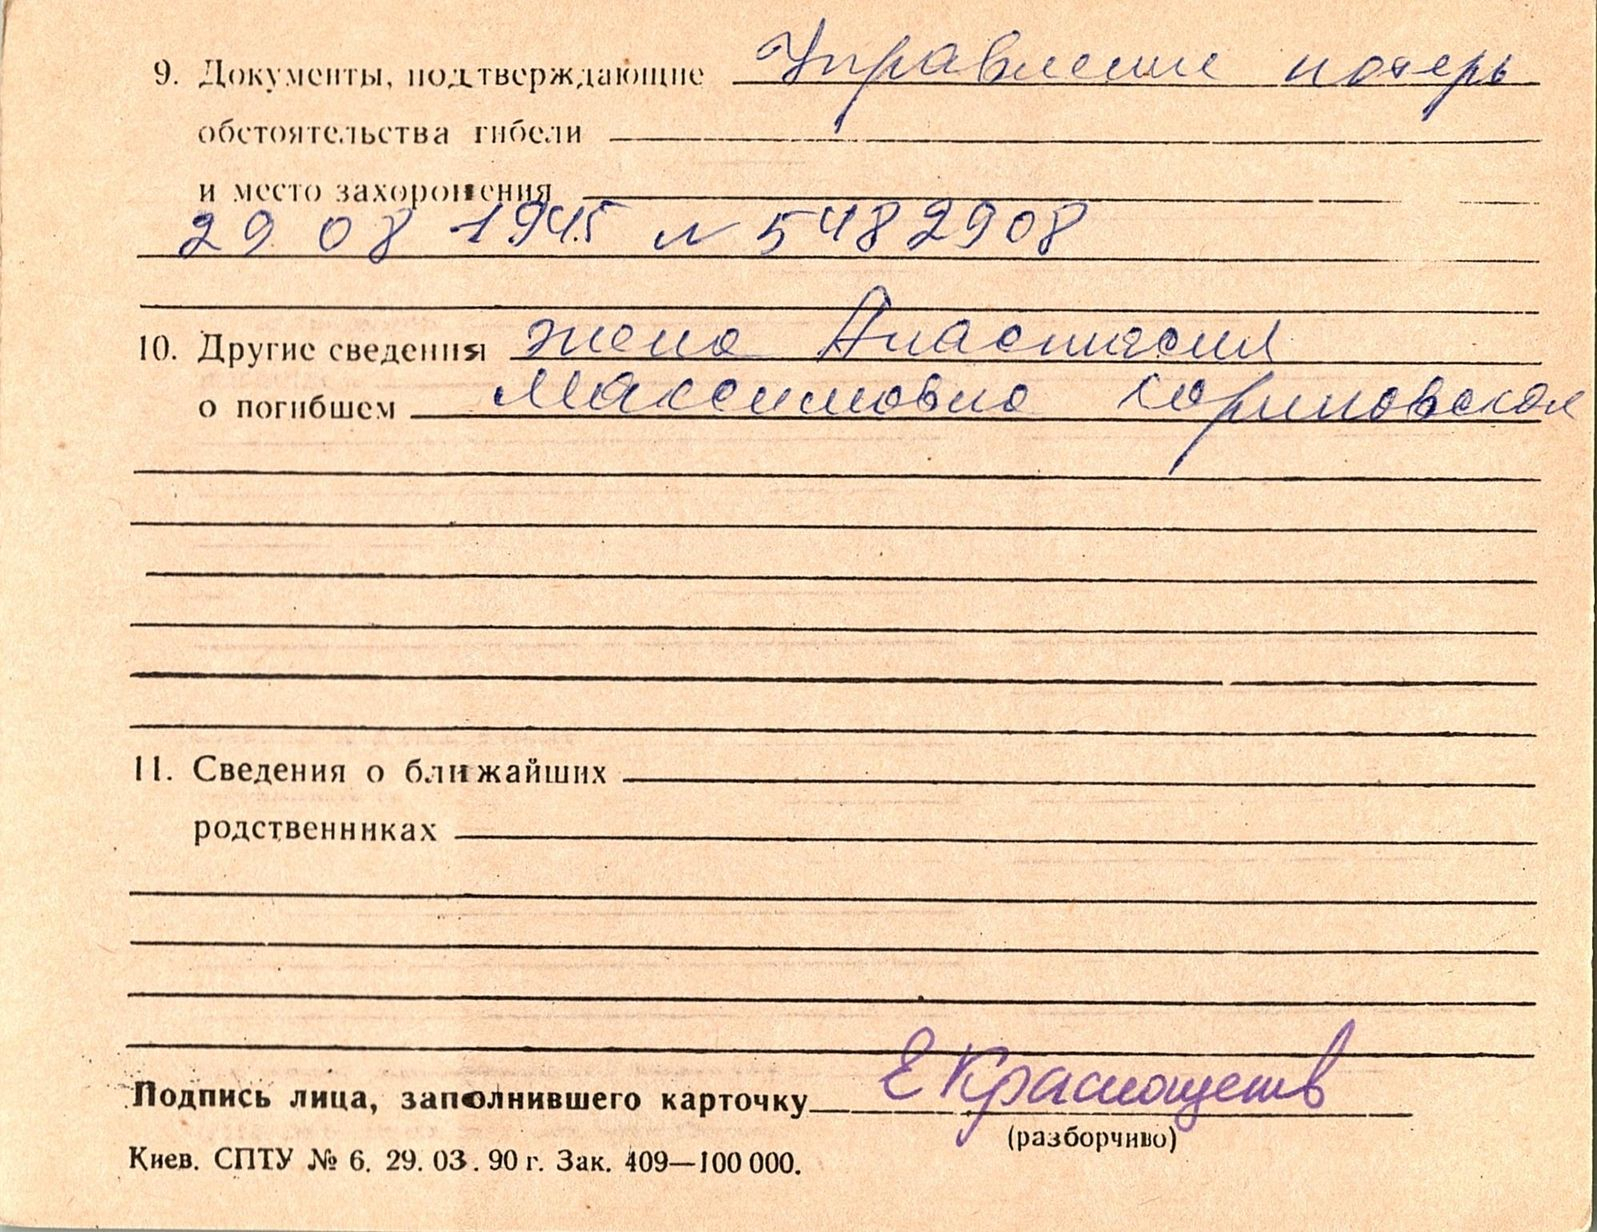 9. Документы, подтверждающие Управление потерь
обстоятельства гибели
и место захоронения
29 08 1945 N 5482908
10. Другие сведения жена Анастасия
о погибшем Максимовна
11. Сведения о ближайших
родственниках
Подпись лица, заполнившего карточку Е
(разборчиво)
Киев. СПТУ № 6. 29. 03. 90 г. Зак. 409—100 000.